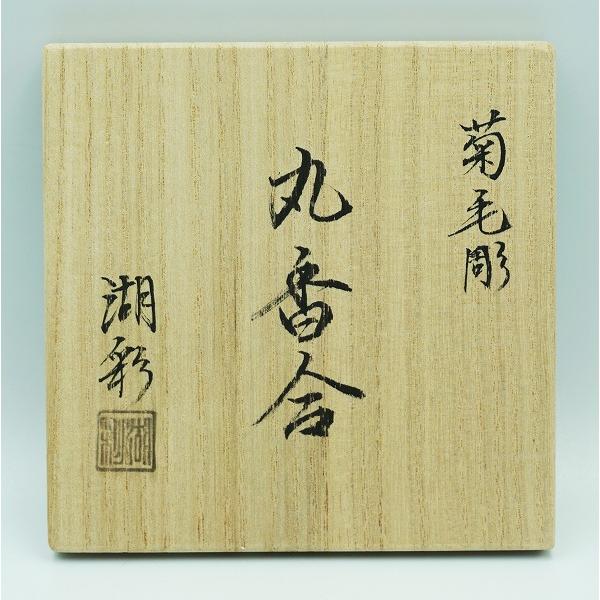 菊毛彫
丸香合
湖彩